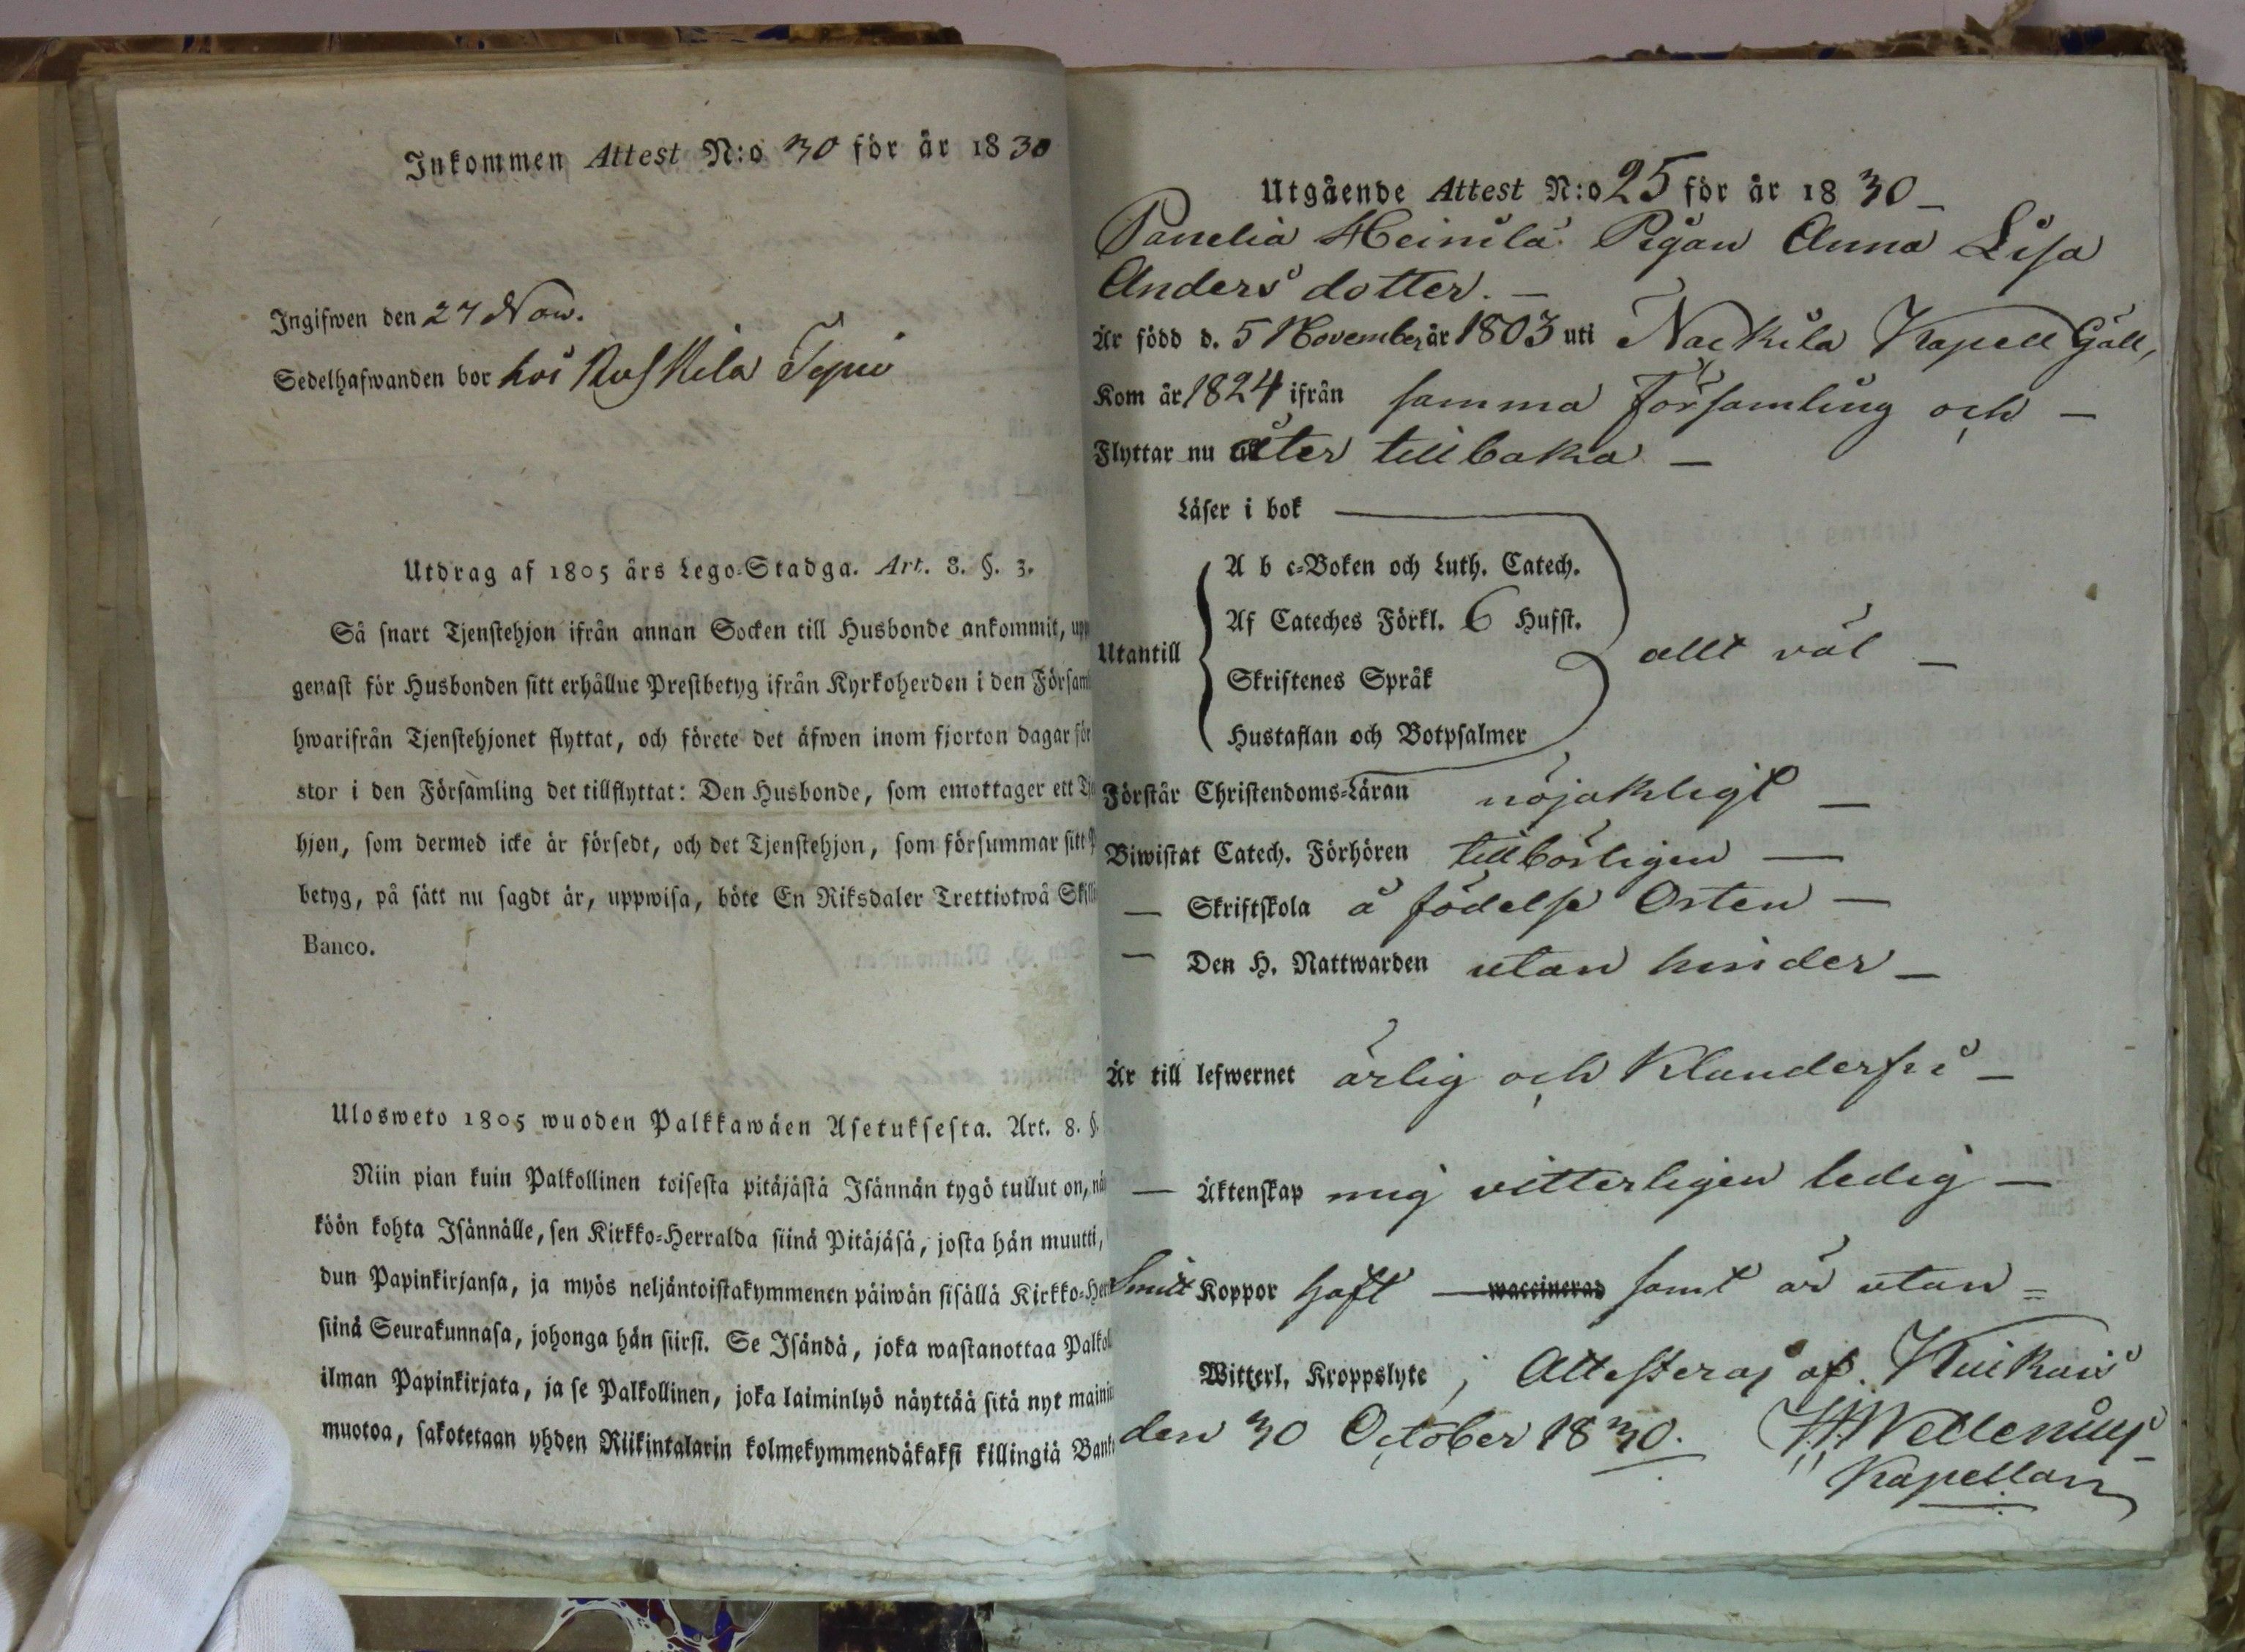 Inkommen Attest N:o 30 för år 1830
Ingifwen den 27 Nov.
Sedelhafwanden bor hos
Utdrag af 1805 års Lego-Stadga. Art. 8. §. 3.
Så snart Tjenstehjon ifrån annan Socken till Husbonde ankommit, upp
genast för Husbonden sitt erhållne Prestbetyg ifrån Kyrkoherden i den Försam
hwarifrån Tjenstehjonet flyttat, och förete det äfwen inom fjorton dagar för
stor i den Församling det tillflyttat: Den Husbonde, som emottager ett Tj
hjon, som dermed icke är försedt, och det Tjenstehjon, som försummar sitt P
betyg, på sätt nu sagdt är, uppwisa, böte En Riksdaler Trettiotwå Skill
Banco.
Ulosweto 1805 wuoden Palkkawäen Asetuksesta. Art. 8. §.
Niin pian kuin Palkollinen toisesta pitäjästä Isännän tygö tullut on, nä
köön kohta Isännälle, sen Kirkko-Herralda siinä Pitäjäsä, josta hän muutti,
dun Papinkirjansa, ja myös neljäntoistakymmenen päiwän sisällä Kirkko-Her
siinä Seurakunnasa, johonga hän siirsi. Se Isändä, joka wastanottaa Palkol
ilman Papinkirjata, ja se Palkollinen, joka laiminlyö näyttää sitä nyt maini
muotoa, sakotetaan yhden Riikintalarin kolmekymmendäkaksi killingiä Bank
Utgående Attest N:o 25 för år 1830 –
Panelia Heinilä Pigan Anna Lisa
Anders dotter. –
Är född d. 5 November år 1803 uti Nackila Kapell Gäll,
Kom år 1824 ifrån samma Församling och –
Flyttar nu åter tillbaka –
Läser i bok
A b c-Boken och Luth. Catech.
Af Cateches Förkl. 6 Hufst.
Utantill
allt väl –
Skriftenes Språk
Hustaflan och Botpsalmer
Förstår Christendoms-Läran nöjakligt –
Biwistat Catech. Förhören tillbörligen –
— Skriftskola å födelse Orten –
— Den H. Nattwarden utan hinder –
Är till lefwernet ärlig och klanderfri –
— Äktenskap mig vitterligen ledig –
Smitt Koppor haft — waccinerad samt är utan =
Witterl. Kroppslyte; Attesteras af. Kiukais
den 30 October 1830.
Kapellan